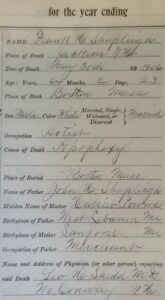 for the year ending
NAME Frank H. Shapleigh
Place of Death Jackson N.H.
Date of Death May 30th 1906
Age: Years, 64 Months, 2 Days, 23
Place of Birth Boston Mass
Sex Male Color White Married, Single, Widowed, or Divorced Married
Occupation Artist
Cause of Death Apoplexy
Place of Burial Boston Mass
Name of Father John N. Shapleigh
Maiden Name of Mother
Birthplace of Father West Lebanon Me
Birthplace of Mother Sanford Me
Occupation of Father Merchant
Name and Address of Physician (or other person) reporting
said Death Geo H. Shedd M.D.
No. Conway N.H.